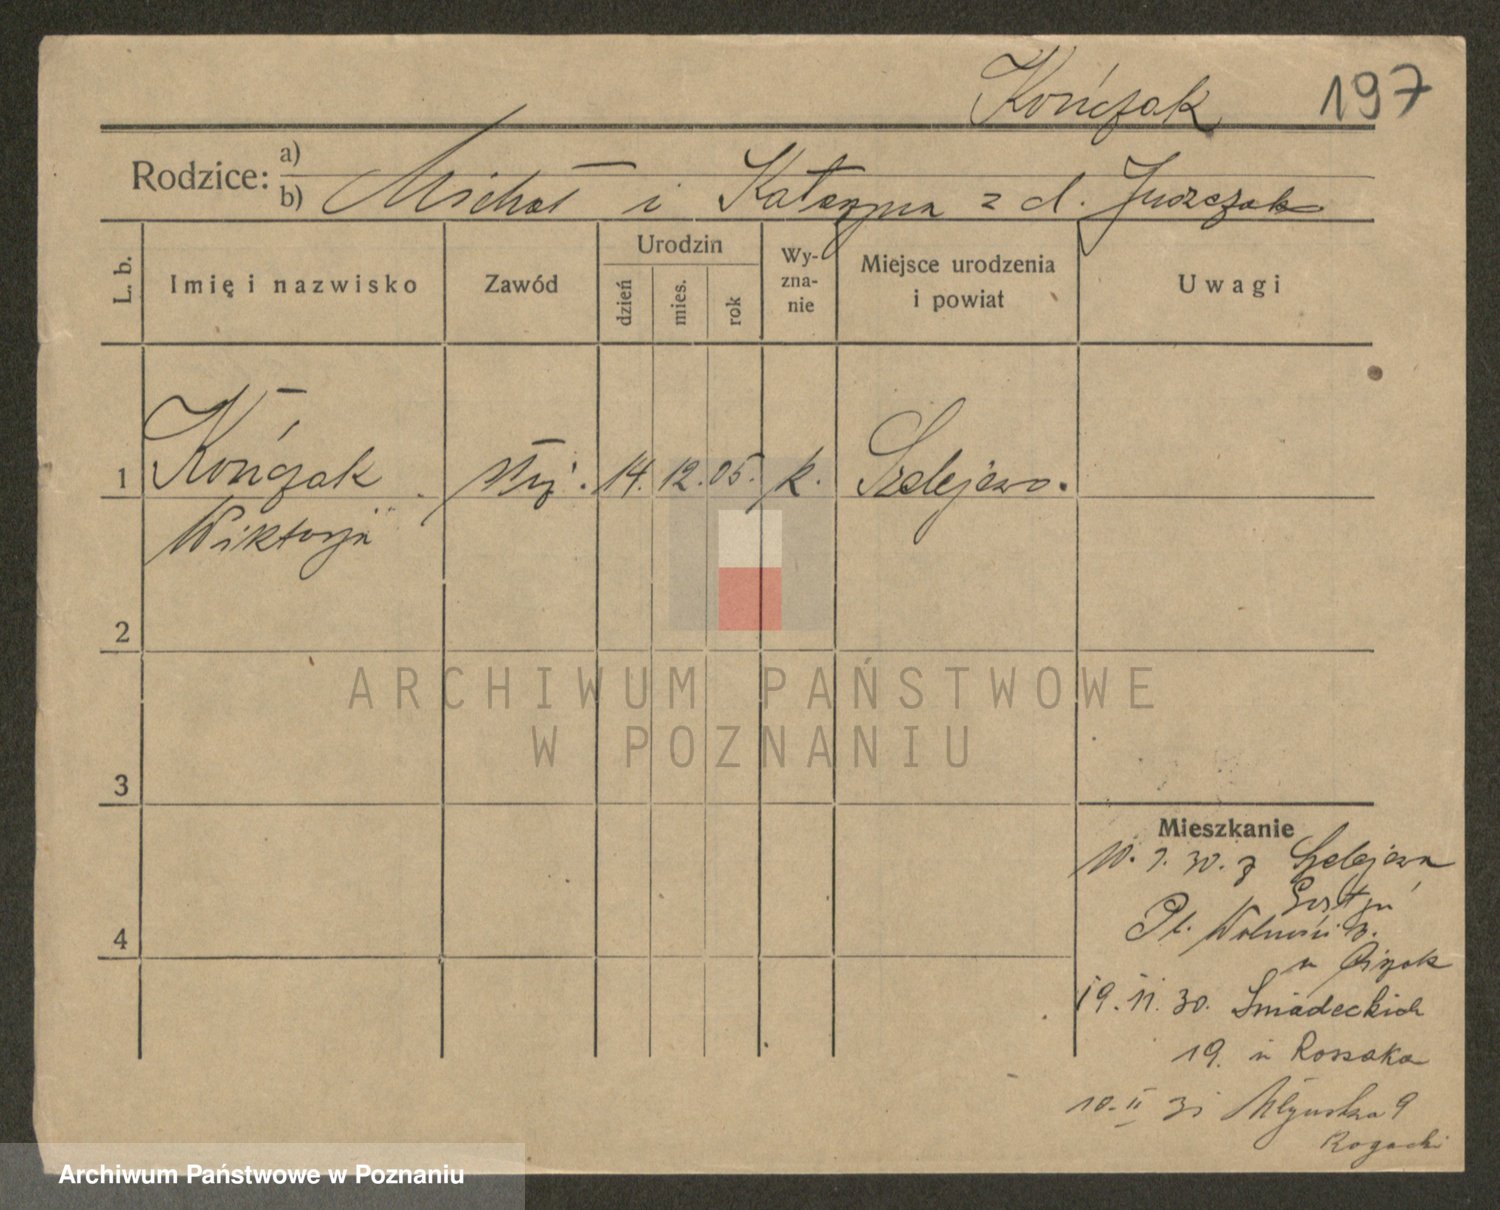 Kończak 197
Rodzice: a)
b) Michał i Katarzyna z d. Juszczak
L. b. Imię i nazwisko Zawód Urodzin Wy-zna-nie Miejsce urodzenia i powiat Uwagi
dzień mies. rok
1 Kończak służ. 14. 12. 05. k. Szelejewo.
Wiktorja
2
ARCHIWUM PAŃSTWOWE
W POZNANIU
3
Mieszkanie
10. 7. 30. z Szelejewa
Gostyń
4
Pl. Wolności 3.
u
19. 11. 30. Śniadeckich
19. u Rossaka
10. II 31 Młyńska 9
Rogacki
Archiwum Państwowe w Poznaniu